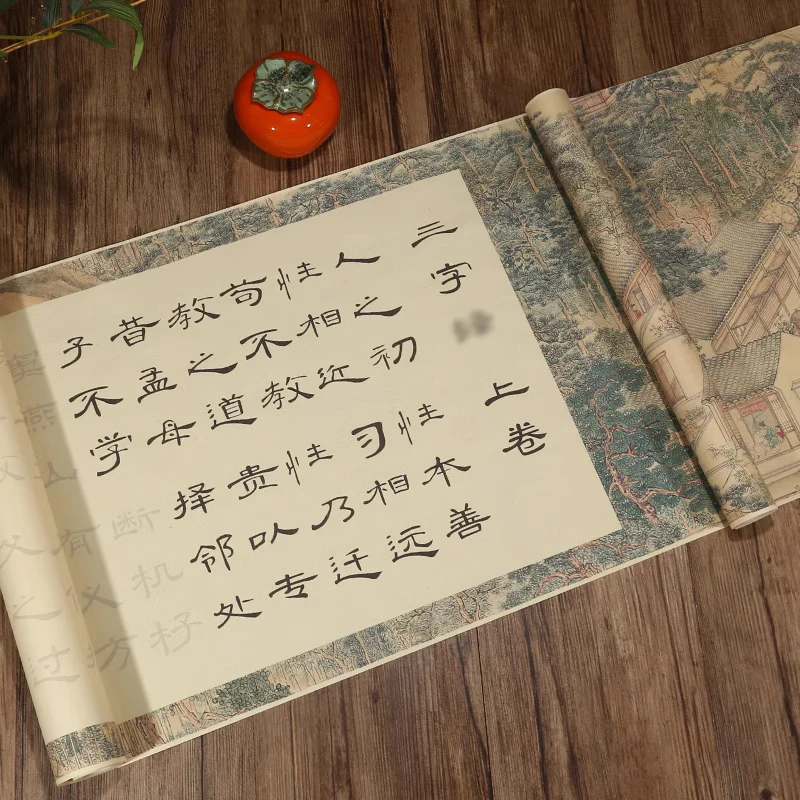 三字
上卷
人之初 性本善
性相近 习相远
苟不教 性乃迁
教之道 贵以专
昔孟母 择邻处
子不学 断机杼
窦燕山 有仪方
父之过